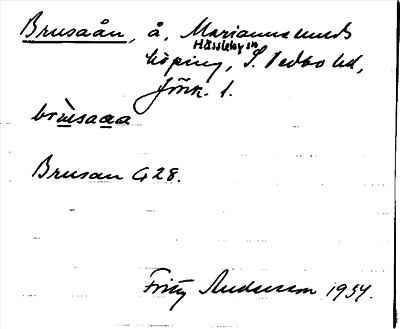 Brusaån, å, Mariannelunds
Hässleby sn
köping, S. Vedbo hd,
Jönk. l.
brùsaaa
Brusan G 28.
Fritz Andersson 1934.